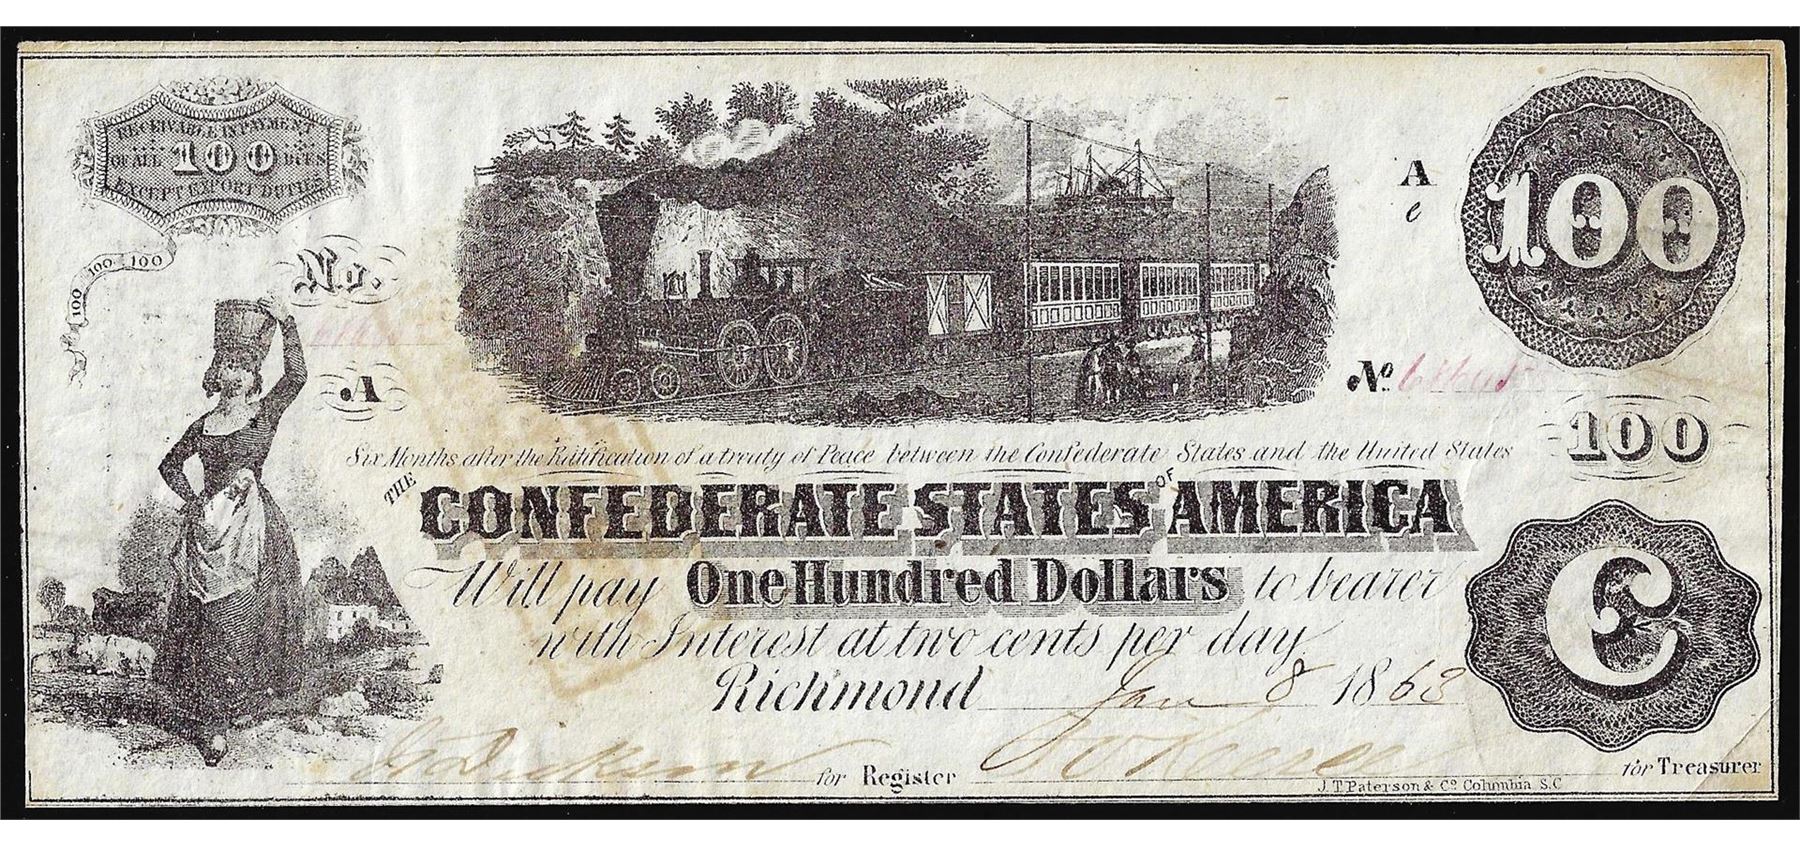 RECEIVABLE IN PAYMENT
OF ALL 100 DUES
EXCEPT EXPORT DUTIES
100 100 100
No.
A
A
e
100
No
100
Six Months after the Ratification of a treaty of Peace between the Confederate States and the United States
THE CONFEDERATE STATES OF AMERICA
Will pay One Hundred Dollars to bearer
with Interest at two cents per day
Richmond Jan 8 1863
C
for Register
for Treasurer
J. T. Paterson & Co Columbia S.C